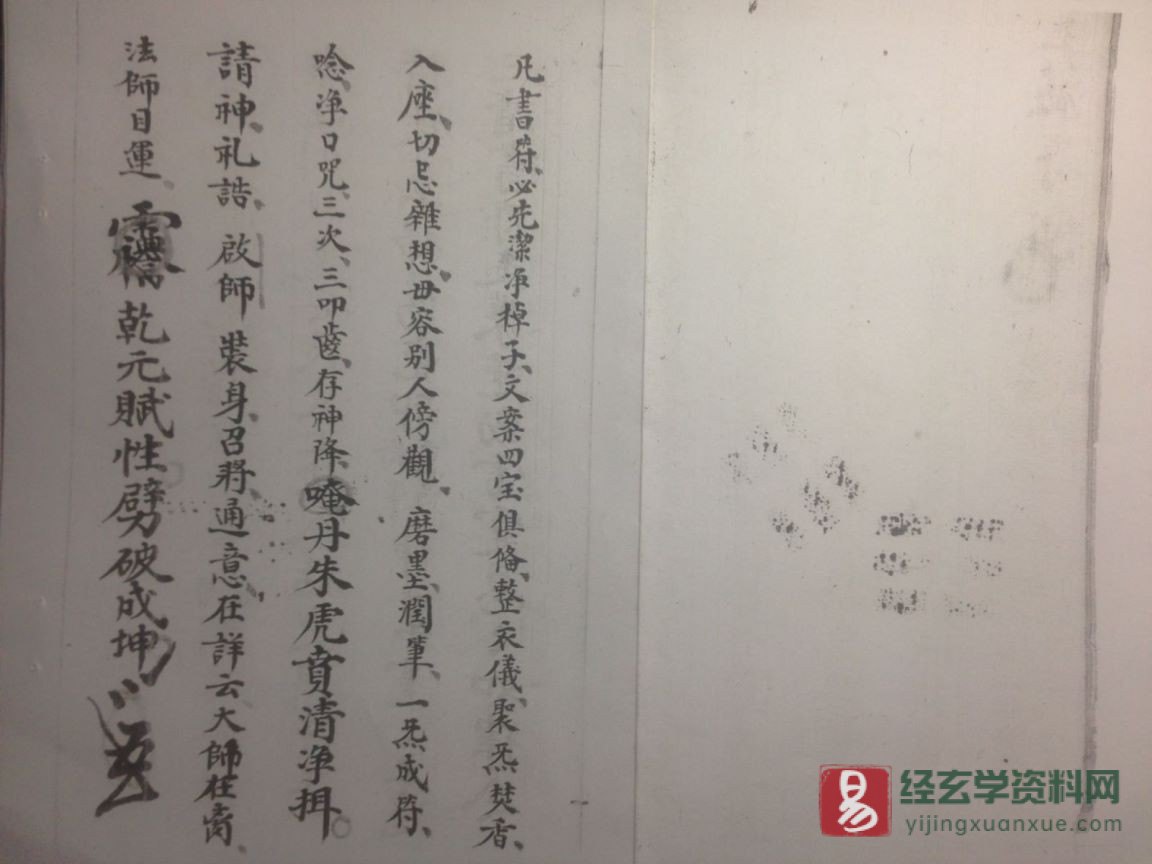 凡書符、必先潔净棹子、文案四宝俱俻、整衣儀、聚炁焚香、
入座、切忌雜想、毋容别人傍觀、磨墨潤筆、一炁成符、
唸净口咒、三次、三叩齒、存神降、唵丹朱虎賁清净揖。
請神、礼誥、啟師 裝身、召将、通意、在詳云大師在
法師目運、乾元賦性劈破成坤
易
经玄学资料网
yijingxuanxue.com